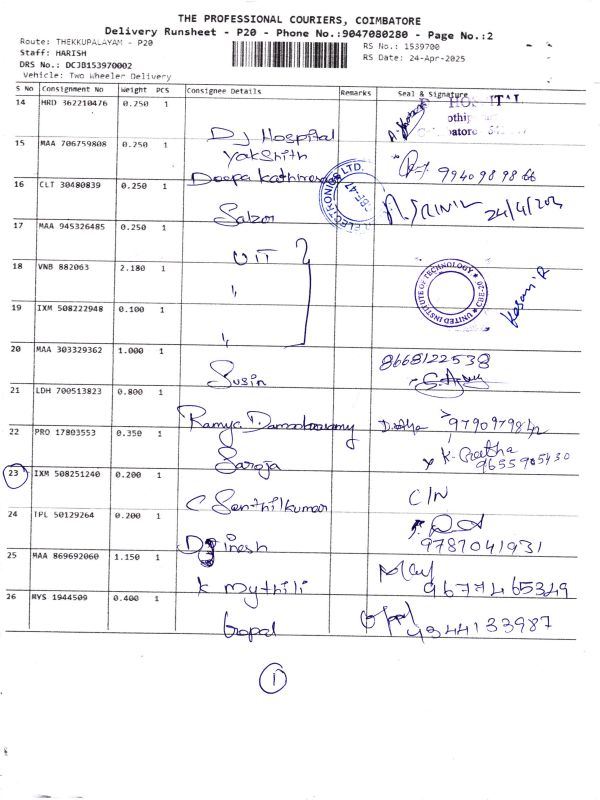 THE PROFESSIONAL COURIERS, COIMBATORE
Delivery Runsheet - P20 - Phone No.:9047080280 - Page No.:2
Route: THEKKUPALAYAM - P20
RS No.: 1539700
Staff: HARISH
RS Date: 24-Apr-2025
DRS No.: DCJB153970002
Vehicle: Two Wheeler Delivery
S No Consignment No Weight PCS Consignee Details Remarks Seal & Signature
14 HRD 362210476 0.250 1
DJ Hospital
15 MAA 706759808 0.250 1
Yakshith
Deepa 99409898 66
16 CLT 30480839 0.250 1
Salzer
17 MAA 945326485 0.250 1
UIT
18 VNB 882063 2.180 1
UNITED INSTITUTE OF TECHNOLOGY
19 IXM 508222948 0.100 1
20 MAA 303329362 1.000 1
Susin 8668122538
21 LDH 700513823 0.800 1
Ramya
22 PRO 17803553 0.350 1
Saroja 9655905430
23 IXM 508251240 0.200 1
C Senthilkumar C/N
24 TPL 50129264 0.200 1
Dinesh 9787041931
25 MAA 869692060 1.150 1
K Mythili 9677465349
26 RYS 1944509 0.400 1
Gopal 9344133987
1